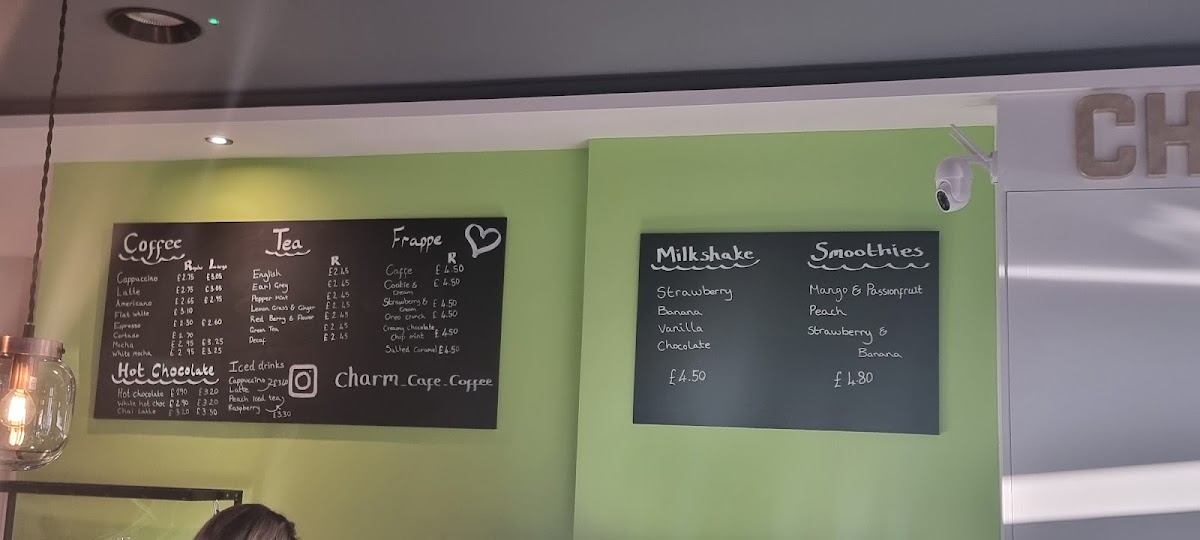 Coffee
Regular Large
Cappuccino £2.75 £3.05
Latte £2.75 £3.05
Americano £2.65 £2.95
Flat white £3.10
Espresso £2.30 £2.60
Cortado £2.70
Mocha £2.95 £3.25
White mocha £2.95 £3.25
Hot Chocolate
Hot chocolate £2.90 £3.20
White hot choc £2.90 £3.20
Chai Latte £3.20 £3.50
Tea
R
English £2.45
Earl Grey £2.45
Pepper Mint £2.45
Lemon Grass & Ginger £2.45
Red Berry & Flower £2.45
Green Tea £2.45
Decaf £2.45
Iced drinks
Cappuccino
Latte £3.40
Peach Iced tea
Raspberry £3.30
Frappe
R
Caffe £4.50
Cookie & Cream £4.50
Strawberry & Cream £4.50
Oreo crunch £4.50
Creamy chocolate
Chip mint £4.50
Salted Caramel £4.50
Charm_Cafe_Coffee
Milkshake
Strawberry
Banana
Vanilla
Chocolate
£4.50
Smoothies
Mango & Passionfruit
Peach
Strawberry &
Banana
£4.80
CH